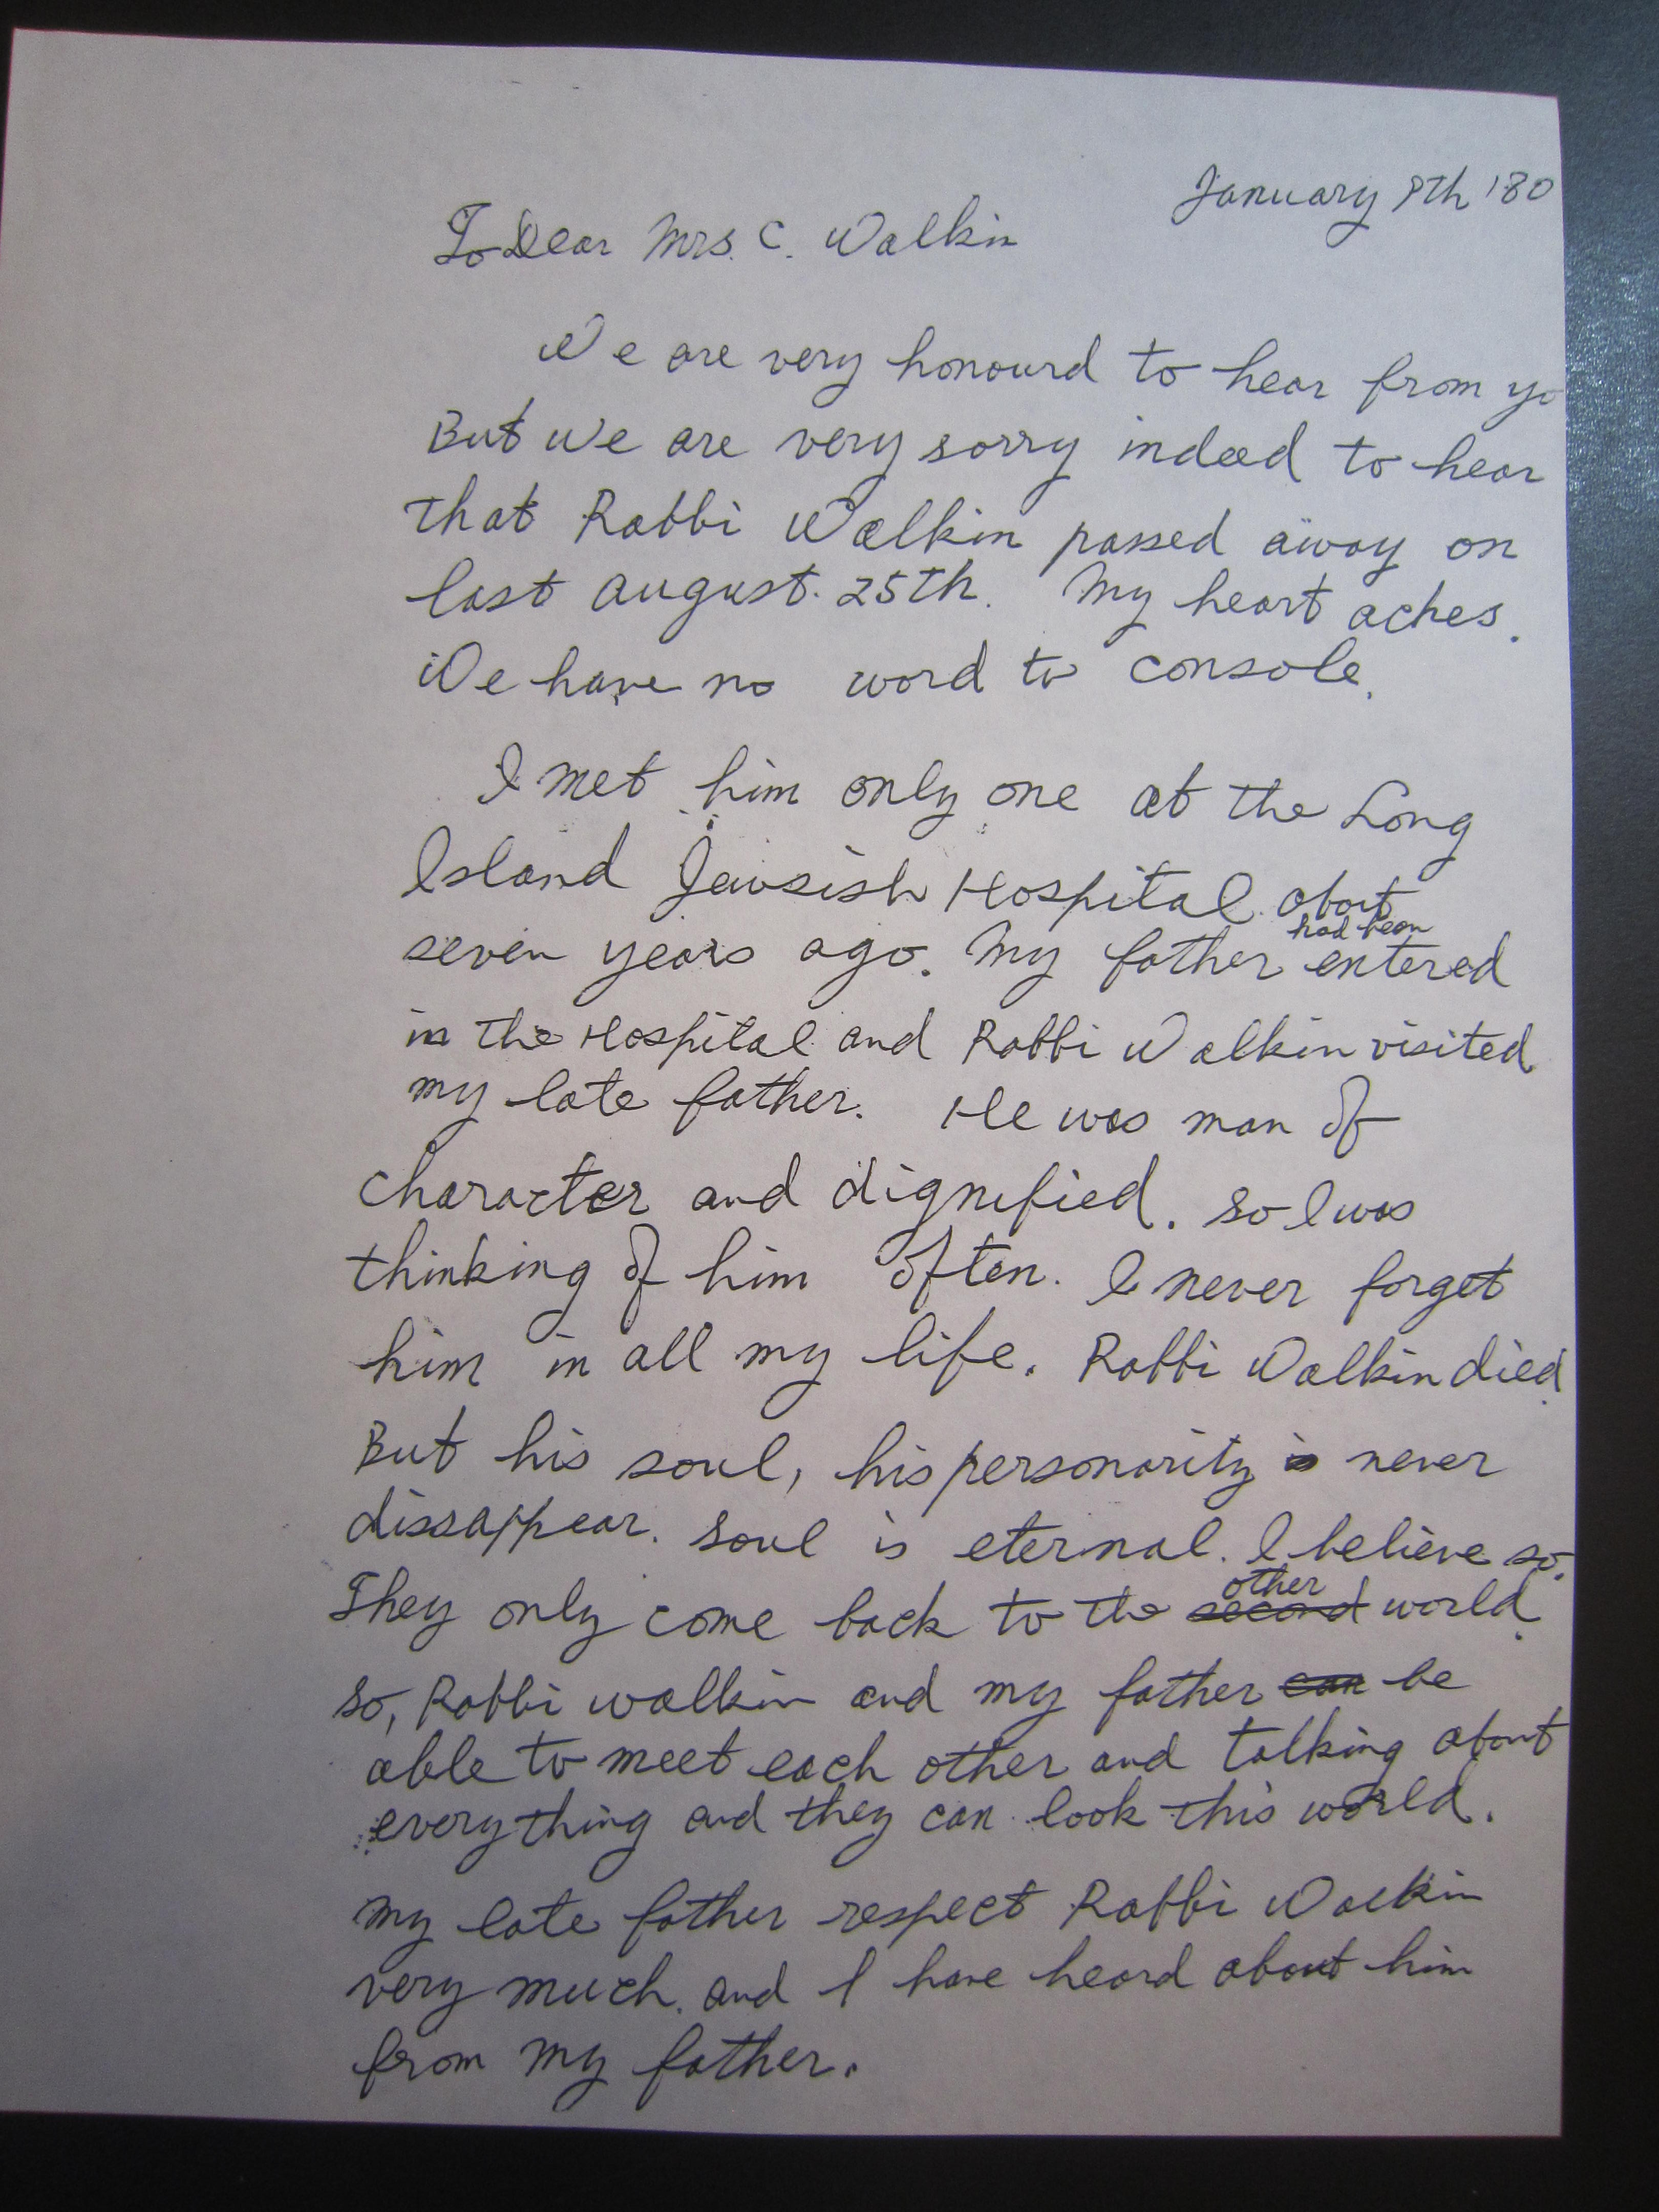 January 8th '80
To Dear Mrs. C. Walkin
We are very honourd to hear from yo
But we are very sorry indeed to hear
that Rabbi Walkin passed away on
last august. 25th. My heart aches.
We have no word to console.
I met him only one at the Long
Island Jewsish Hospital about
had been
seven years ago. My father entered
in the Hospital and Rabbi Walkin visited
my late father. He was man of
character and dignified. so I was
thinking of him often. I never forget
him in all my life. Rabbi Walkin died.
But his soul, his personarity is never
dissappear. Soul is eternal. I believe so.
other
They only come back to the second world.
so, Rabbi walkin and my father can be
able to meet each other and talking about
everything and they can look this world.
My late father respect Rabbi Walkin
very much. and I have heard about him
from my father.